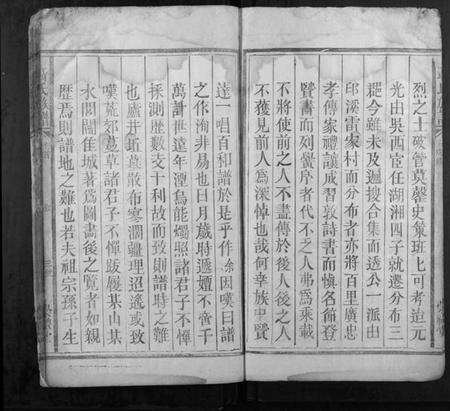 烈之士破管莫罄史策班七可考迨元
光由吳西宦任湖湘四子就遷分布三
楚今雖未及遍搜合集而透公一派由
邱溪雷家村而分布者亦將百里廣忠
孝傳家禮讓成習敦詩書而錦名飾登
賢書而列黌序者代不乏人弗為乘載
不將使前之人不盡傳於後人後之人
不獲見前人為深悼也哉何幸族中賢
達一唱百和譜於是乎作余因嘆曰譜
之作洵非易也日月歲時遞嬗不啻千
萬計世遠年湮烏能燭照諸君子不憚
採測歷數支十利故而致則譜時之難
也廬井 墓散布寥濶疆理迢遙或攷
嘆荒郊蔓草諸君子不憚跋履某山某
水閗闔佳城著為圖畫後之覽者如親
歷焉則譜地之難也若夫祖宗孫子生